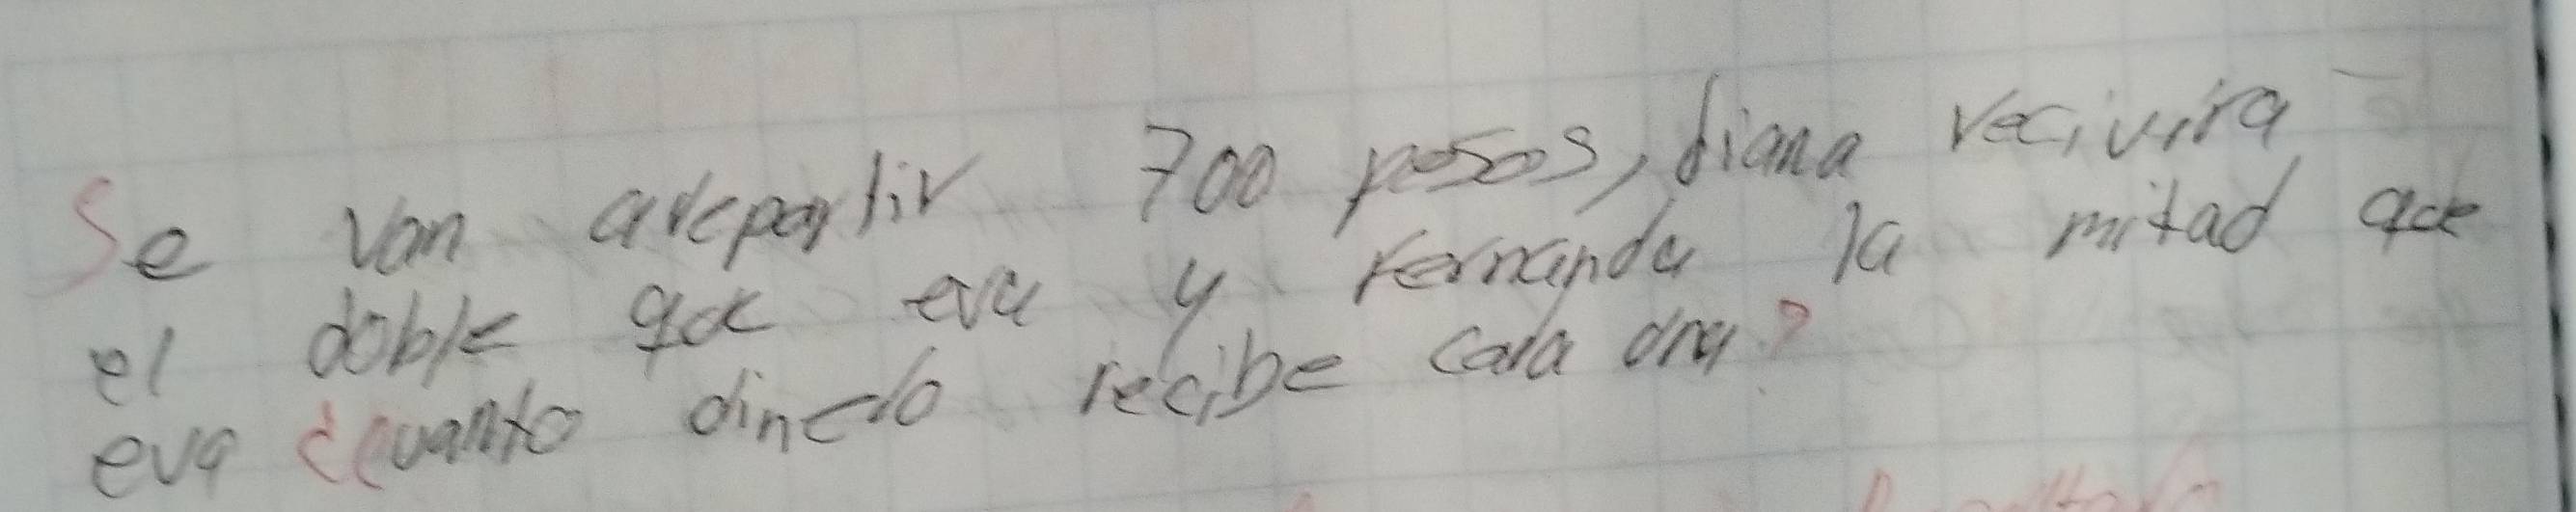 Se van arepartir 700 pesos, diana recivira
el doble que eva y Fernanda la mitad que
eva ¿cuanto dinero recibe cada una?